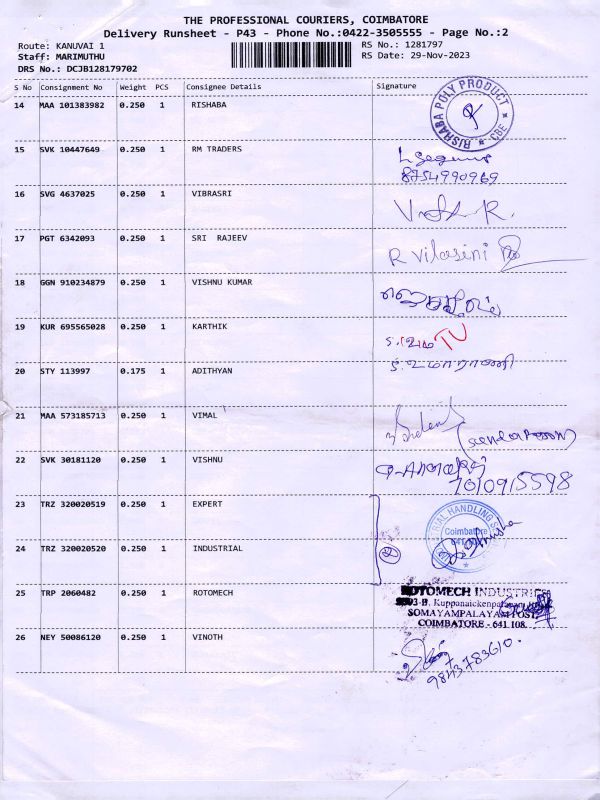 THE PROFESSIONAL COURIERS, COIMBATORE
Delivery Runsheet - P43 - Phone No.:0422-3505555 - Page No.:2
Route: KANUVAI 1 RS No.: 1281797
Staff: MARIMUTHU RS Date: 29-Nov-2023
DRS No.: DCJB128179702
S No Consignment No Weight PCS Consignee Details Signature
14 MAA 101383982 0.250 1 RISHABA
RISHABA POLY PRODUCT ★ CBE ★
15 SVK 10447649 0.250 1 RM TRADERS
8754990969
16 SVG 4637025 0.250 1 VIBRASRI
R.
17 PGT 6342093 0.250 1 SRI RAJEEV
R Vilasini
18 GGN 910234879 0.250 1 VISHNU KUMAR
19 KUR 695565028 0.250 1 KARTHIK
20 STY 113997 0.175 1 ADITHYAN
21 MAA 573185713 0.250 1 VIMAL
22 SVK 30181120 0.250 1 VISHNU
7010915598
23 TRZ 320020519 0.250 1 EXPERT
HANDLING
Coimbatore
24 TRZ 320020520 0.250 1 INDUSTRIAL
25 TRP 2060482 0.250 1 ROTOMECH
ROTOMECH INDUSTRIES
Kuppanaickenpalayam
SOMAYAMPALAYAM POST,
COIMBATORE - 641 108.
26 NEY 50086120 0.250 1 VINOTH
9843783610.